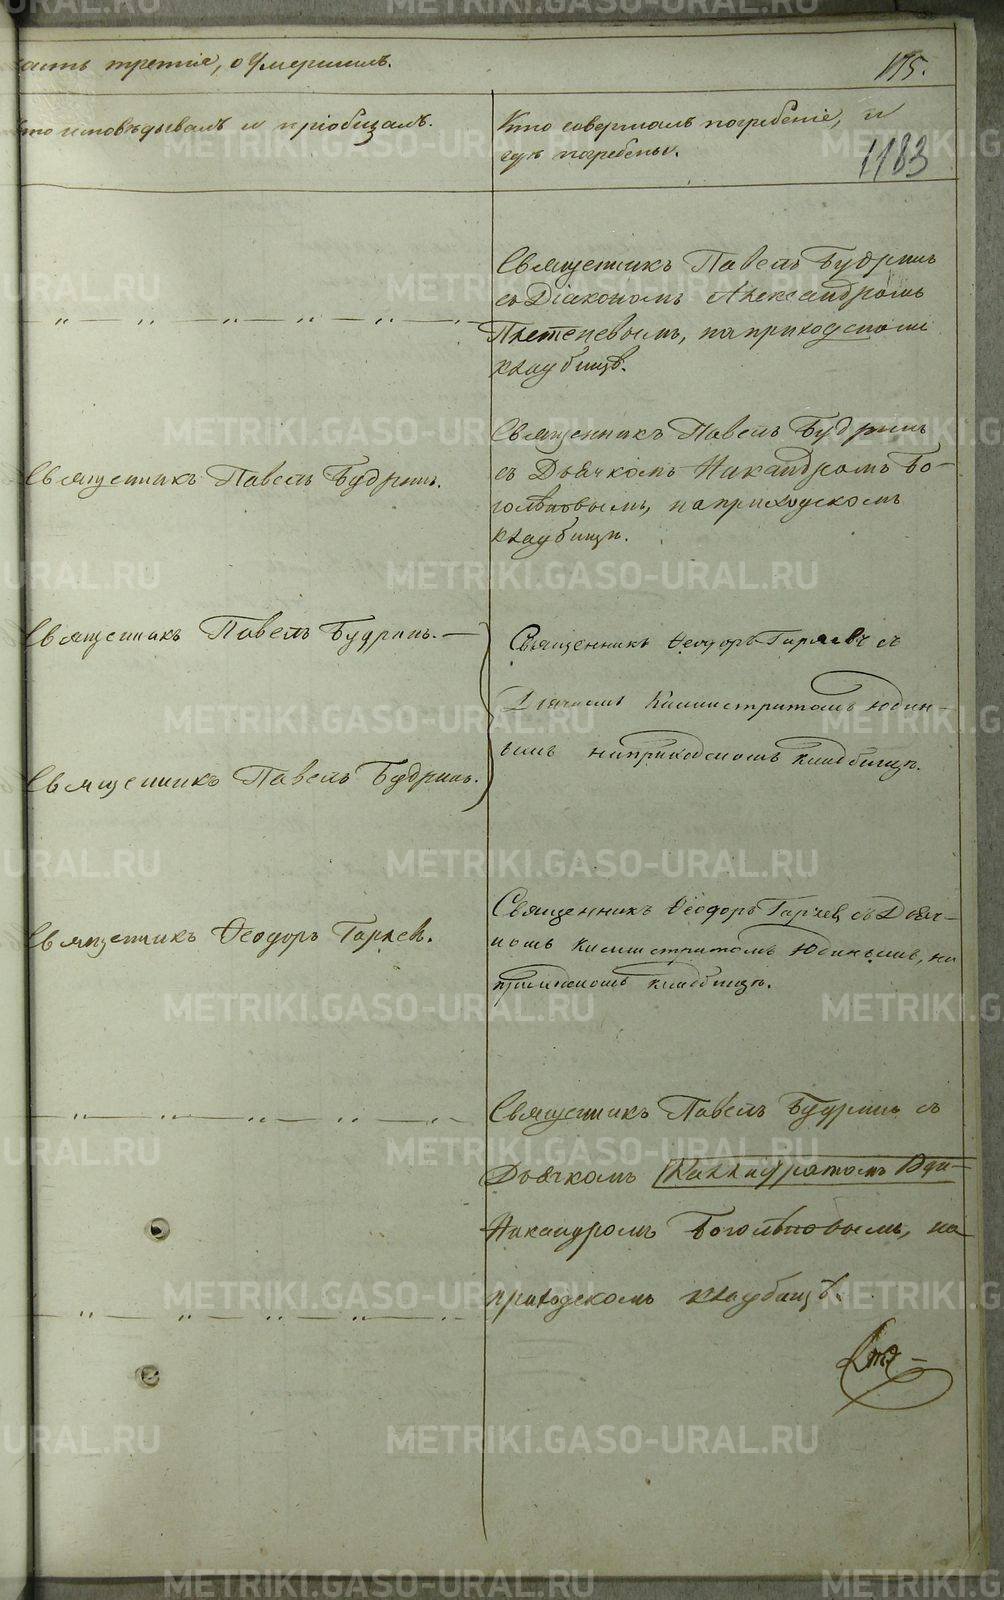 асть третія, о Умершихъ.
175.
Кто исповѣдывалъ и пріобщалъ.
Кто совершалъ погребеніе, и
гдѣ погребены.
1183
Священникъ Павелъ Будринъ
съ Діакономъ Александромъ
Плетеневымъ, на приходскомъ
кладбищѣ.
Священникъ Павелъ Будринъ.
Священникъ Павелъ Будринъ
съ Дьячкомъ Никандромъ Бо-
голѣповымъ, на приходскомъ
кладбищѣ.
Священникъ Павелъ Будринъ.
Священникъ Павелъ Будринъ.
Священникъ Ѳеодоръ Гаряевъ съ
Дьячкомъ Каллистратомъ Юдин-
ымъ на приходскомъ кладбищѣ.
Священникъ Ѳеодоръ Гаряев.
Священникъ Ѳеодоръ Гаряев, съ Дьяч-
комъ Каллистратомъ Юдинымъ, на
приходскомъ кладбищѣ.
Священникъ Павелъ Будринъ съ
Дьячкомъ Каллистратомъ Юди-
Никандромъ Боголѣповымъ, на
приходскомъ кладбищѣ.
METRIKI.GASO-URAL.RU